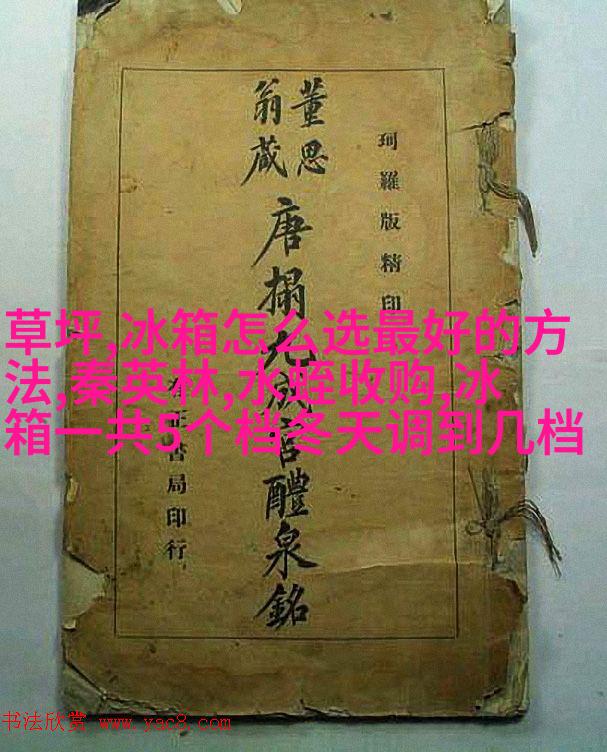 珂羅版精印
董思
翁蔵
唐搨九成宮醴泉銘
有正書局印行
草坪,冰箱怎么选最好的方
法,秦英林,水蛭收购,冰
箱一共5个档冬天调到几档
书法欣赏 www.yac8.com